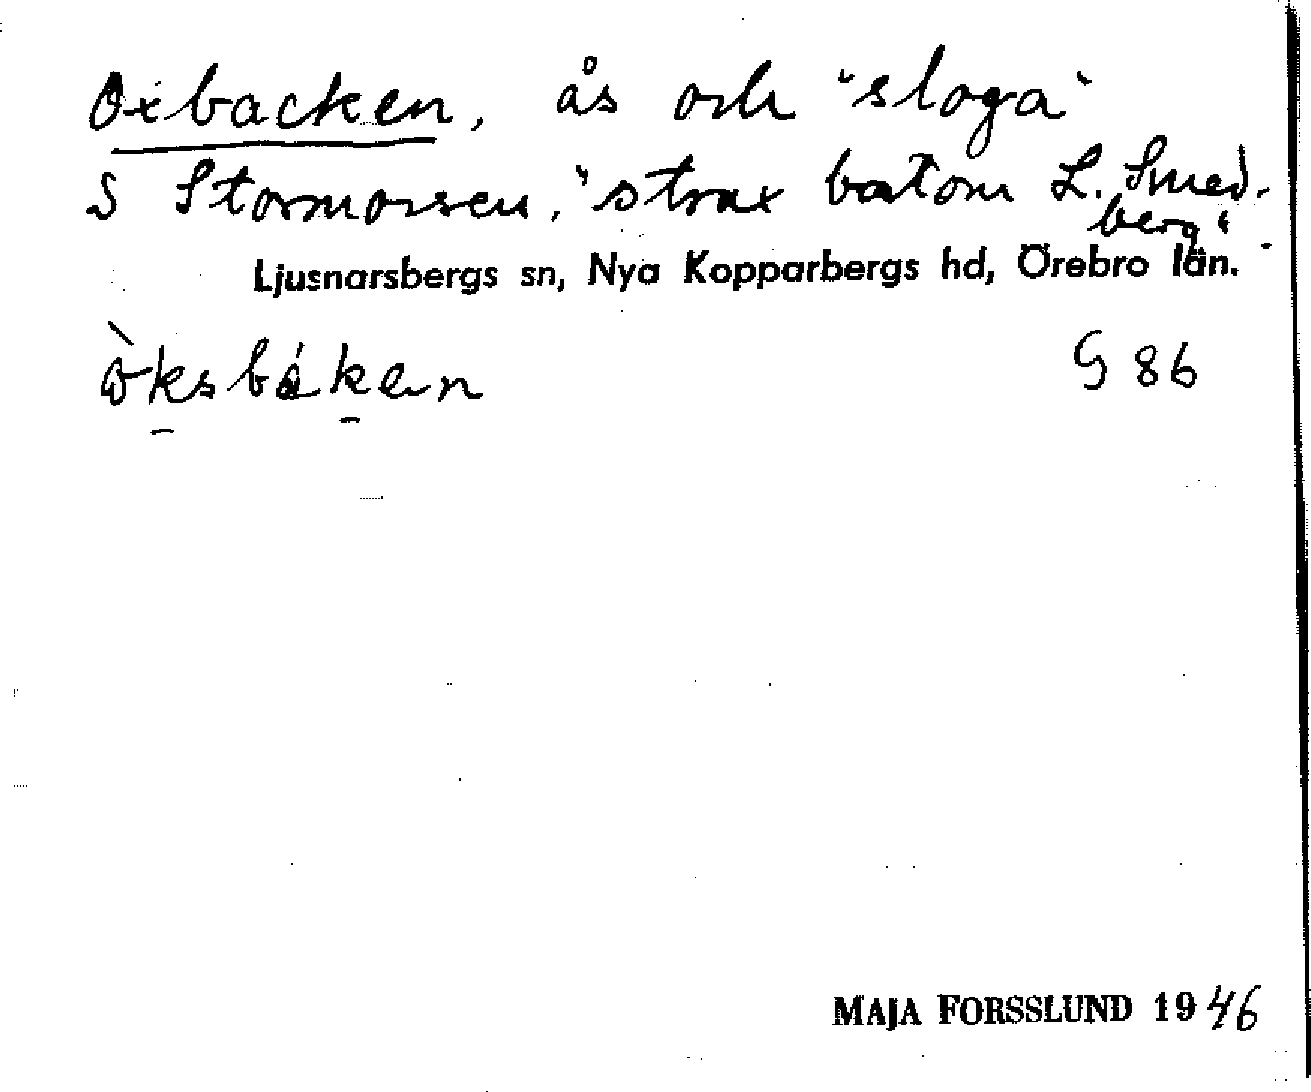 Oxbacken, ås och "sloga"
S Stormossen, "strax bakom L. Smedberg"
Ljusnarsbergs sn, Nya Kopparbergs hd, Örebro län.
òksbákαn
G 86
MAJA FORSSLUND 1946